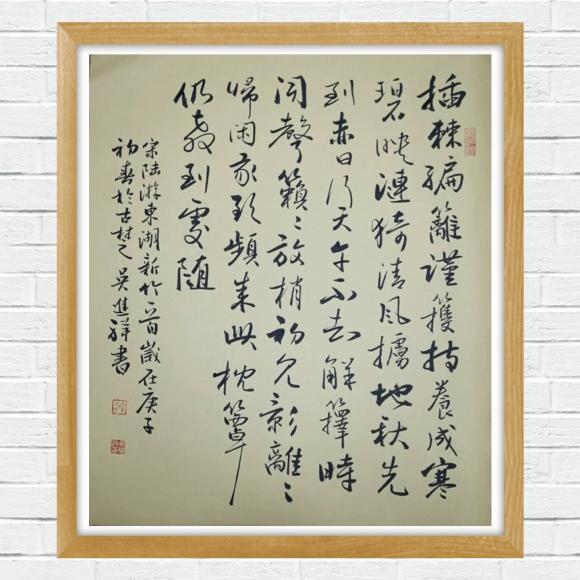 插棘編籬謹護持養成寒
碧映漣猗清風擄地秋先
到赤日行天午不知解籜時
聞聲籟〻放梢初見影離〻
歸閑我欲頻來此枕簟
仍教到處隨
宋陸游東湖新竹一首歲在庚子
初春於古楚吳進祥書